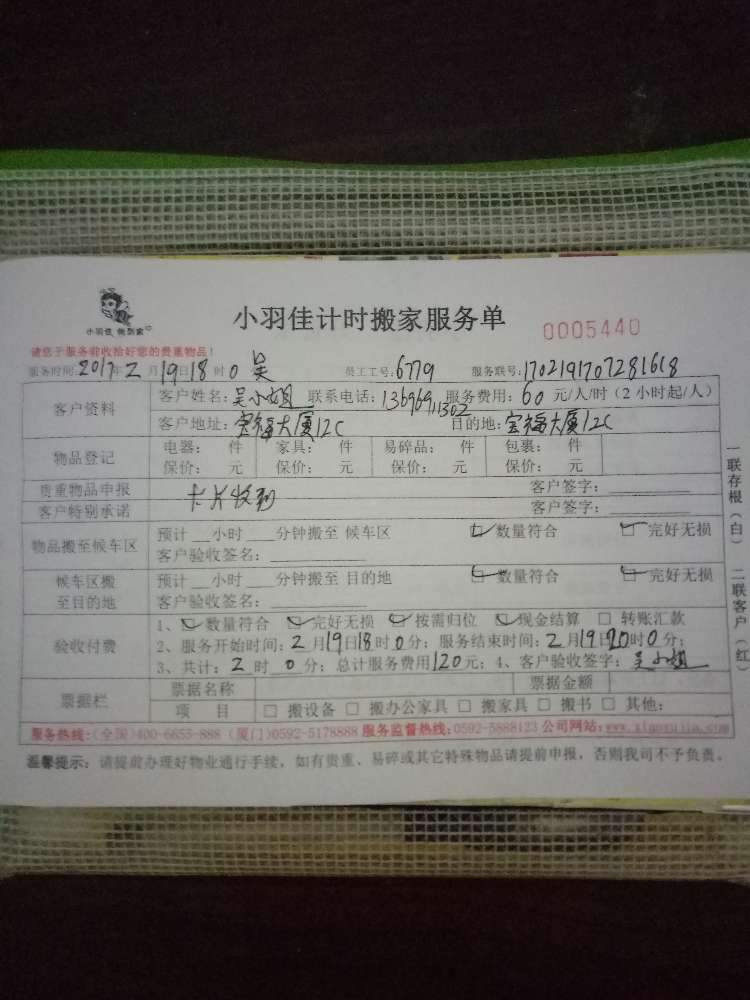 小羽佳 微到家
小羽佳计时搬家服务单
0005440
请您于服务前收拾好您的贵重物品！
服务时间：2017年2月19日18时0 吴 员工工号：6779 服务联号：1702191707281618
客户资料
客户姓名：吴小姐 联系电话：13696911302 服务费用：60元/人/时（2小时起/人）
客户地址：宝福大厦12C 目的地：宝福大厦12C
物品登记
电器： 件 家具： 件 易碎品： 件 包裹： 件
保价： 元 保价： 元 保价： 元 保价： 元
贵重物品申报 客户签字：
卡片收到
客户特别承诺 客户签字：
物品搬至候车区
预计__小时___分钟搬至 候车区 ☑数量符合 ☑完好无损
客户验收签名：
候车区搬至目的地
预计__小时___分钟搬至 目的地 ☑数量符合 ☑完好无损
客户验收签名：
验收付费
1、☑数量符合 ☑完好无损 ☑按需归位 ☑现金结算 □ 转账汇款
2、服务开始时间：2月19日18时0分；服务结束时间：2月19日20时0分；
3、共计：2时0分；总计服务费用120元；4、客户验收签字：吴小姐
票据栏
票据名称 票据金额
项 目 □ 搬设备 □ 搬办公家具 □ 搬家具 □ 搬书 □ 其他：
服务热线：(全国)400-6653-888 (厦门)0592-5178888 服务监督热线：0592-5888123 公司网站：www.xiaoyujia.com
温馨提示：请提前办理好物业通行手续，如有贵重、易碎或其它特殊物品请提前申报，否则我司不予负责。
一联存根（白） 二联客户（红）